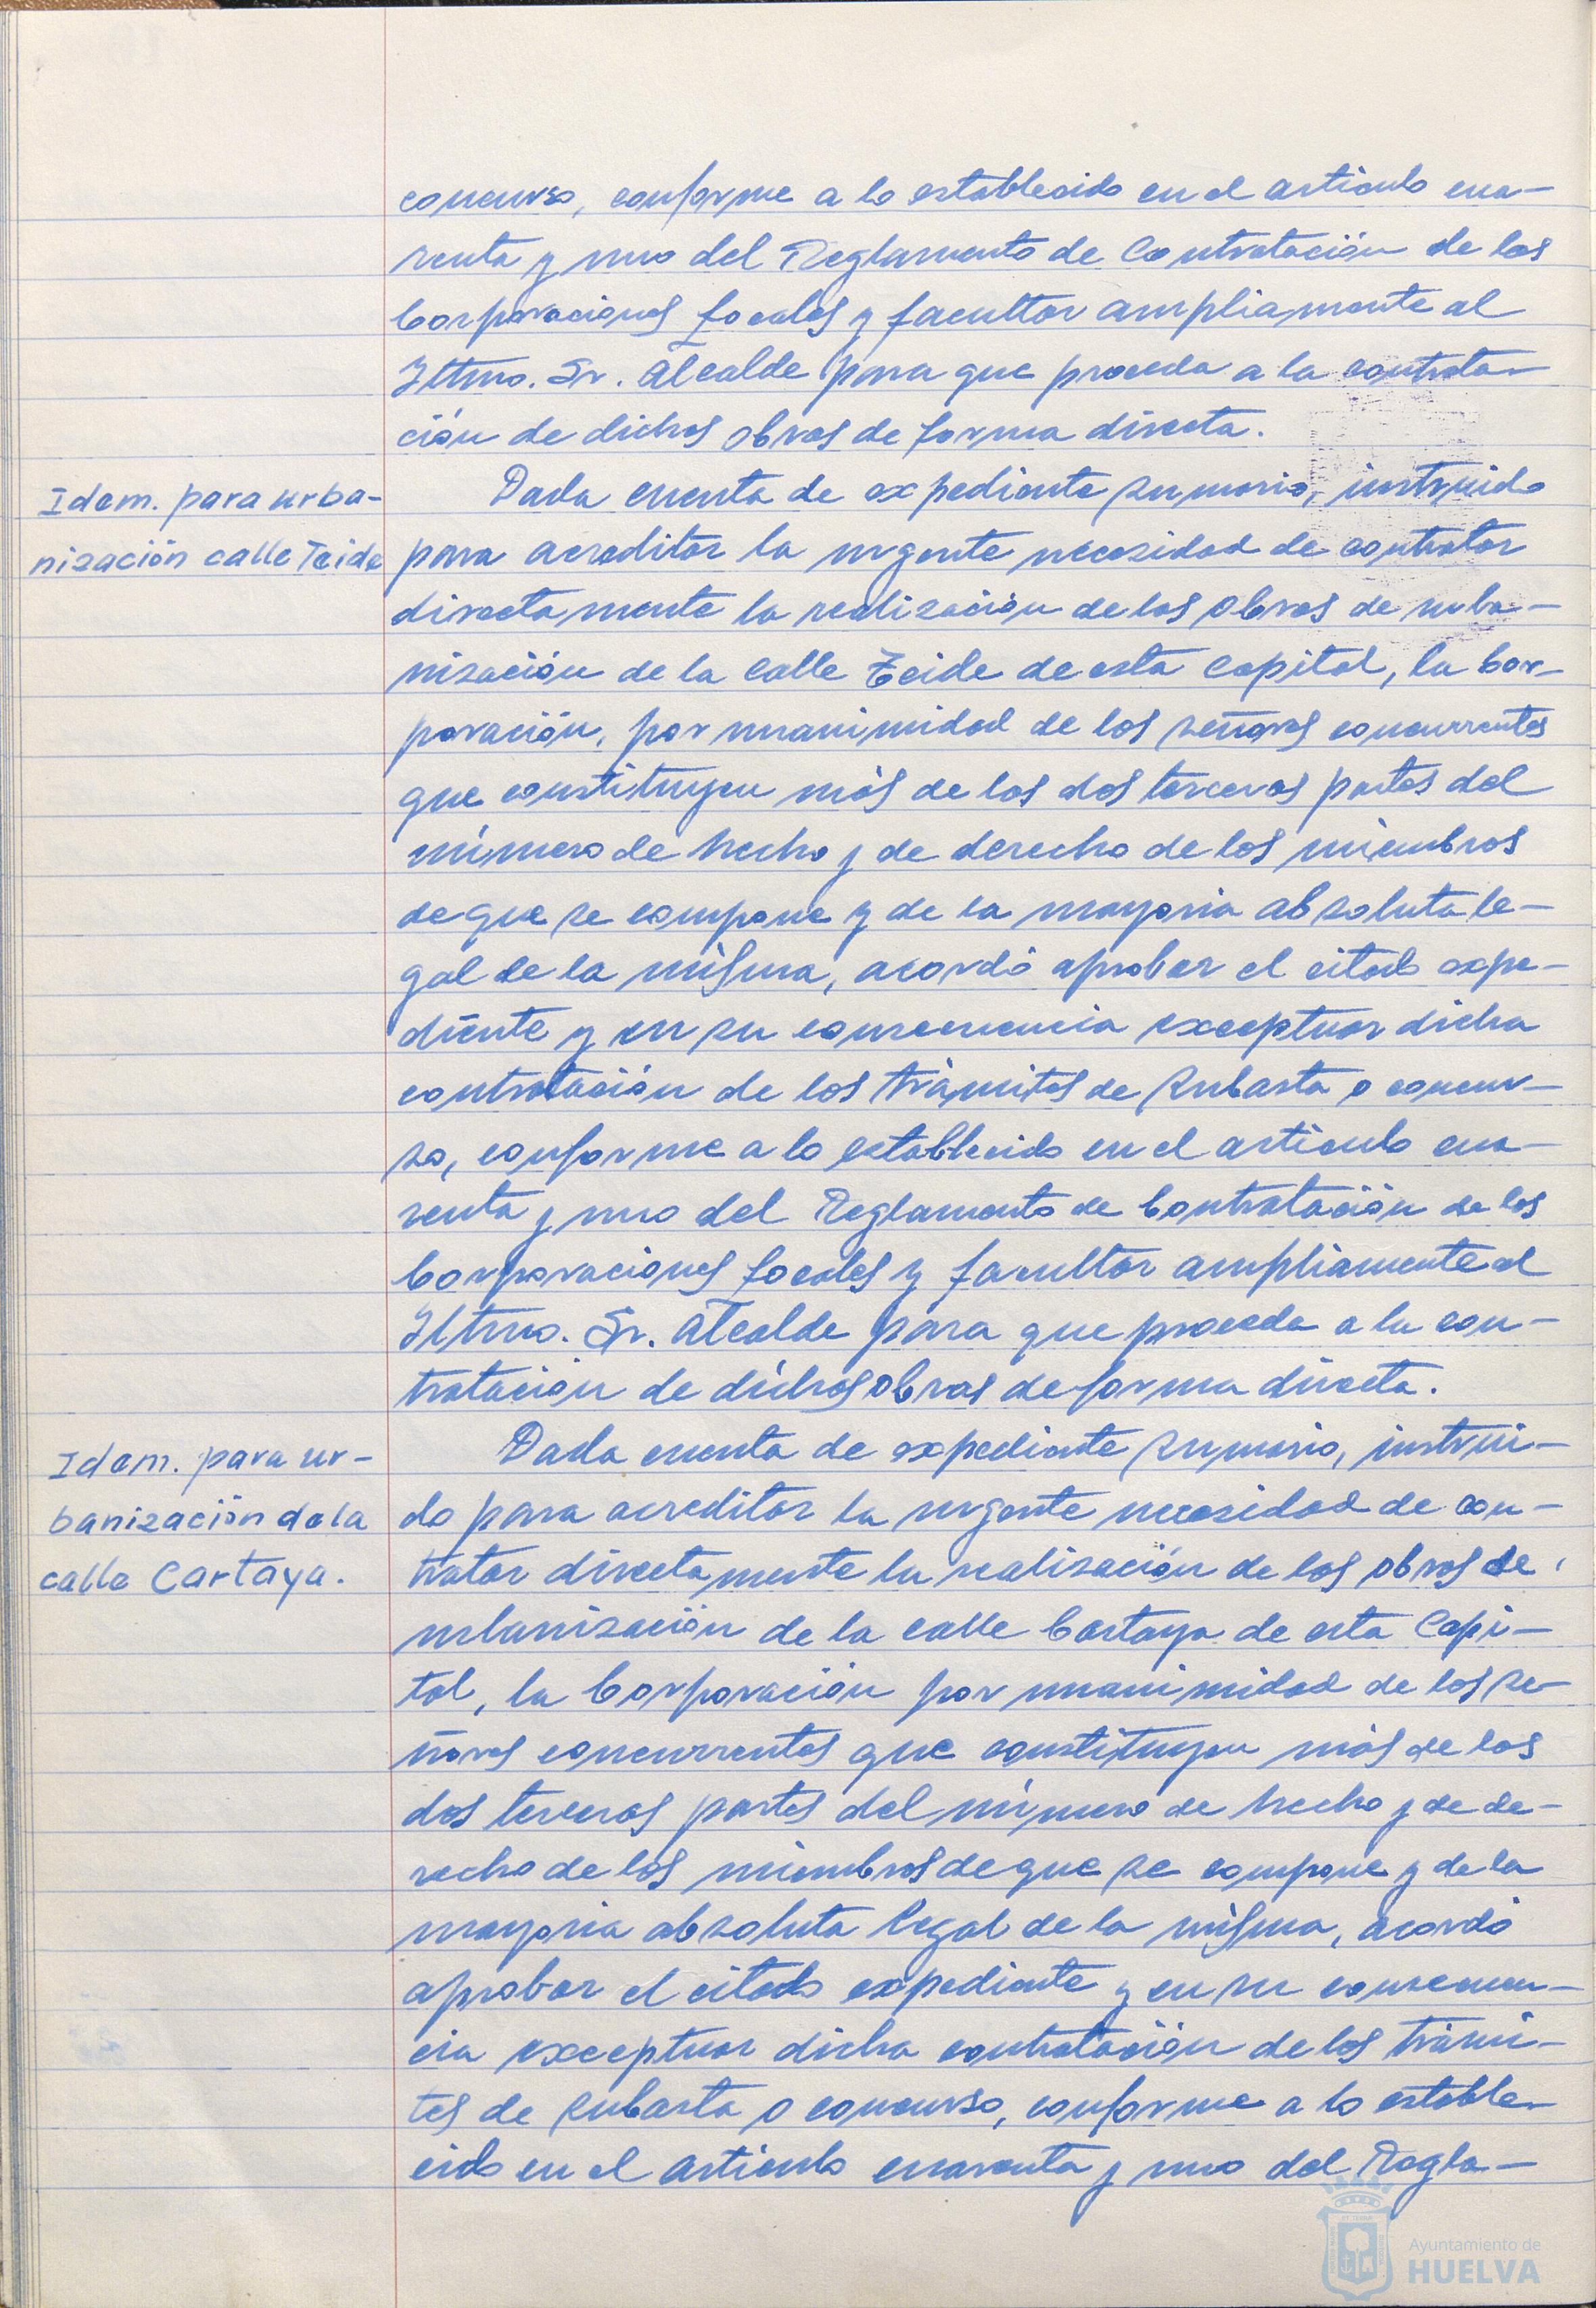 concurso, conforme a lo establecido en el articulo cua-
renta y uno del Reglamento de Contratación de las
Corporaciones Locales y facultar ampliamente al
Iltmo. Sr. Alcalde para que proceda a la contrata-
ción de dichas obras de forma directa.
Idem. para urba-
nización calle Teide
Dada cuenta de expediente sumario, instruido
para acreditar la urgente necesidad de contratar
directamente la realización de las obras de urba-
nización de la calle Teide de esta capital, la Cor-
poración, por unanimidad de los señores concurrentes
que constituyen más de las dos terceras partes del
número de hecho y de derecho de los miembros
de que se compone y de la mayoria absoluta le-
gal de la misma, acordó aprobar el citado expe-
diente y en su consecuencia exceptuar dicha
contratación de los trámites de subasta o concur-
so, conforme a lo establecido en el articulo cua-
renta y uno del Reglamento de Contratación de las
Corporaciones Locales y facultar ampliamente al
Iltmo. Sr. Alcalde para que proceda a la con-
tratación de dichas obras de forma directa.
Idem. para ur-
banización de la
calle Cartaya.
Dada cuenta de expediente sumario, instrui-
do para acreditar la urgente necesidad de con-
tratar directamente la realización de las obras de
urbanización de la calle Cartaya de esta Capi-
tal, la Corporación por unanimidad de los se-
ñores concurrentes que constituyen más de las
dos terceras partes del número de hecho y de de-
recho de los miembros de que se compone y de la
mayoria absoluta legal de la misma, acordó
aprobar el citado expediente y en su consecuen-
cia exceptuar dicha contratación de los trámi-
tes de subasta o concurso, conforme a lo estable-
cido en el articulo cuarenta y uno del Regla-
Ayuntamiento de
HUELVA